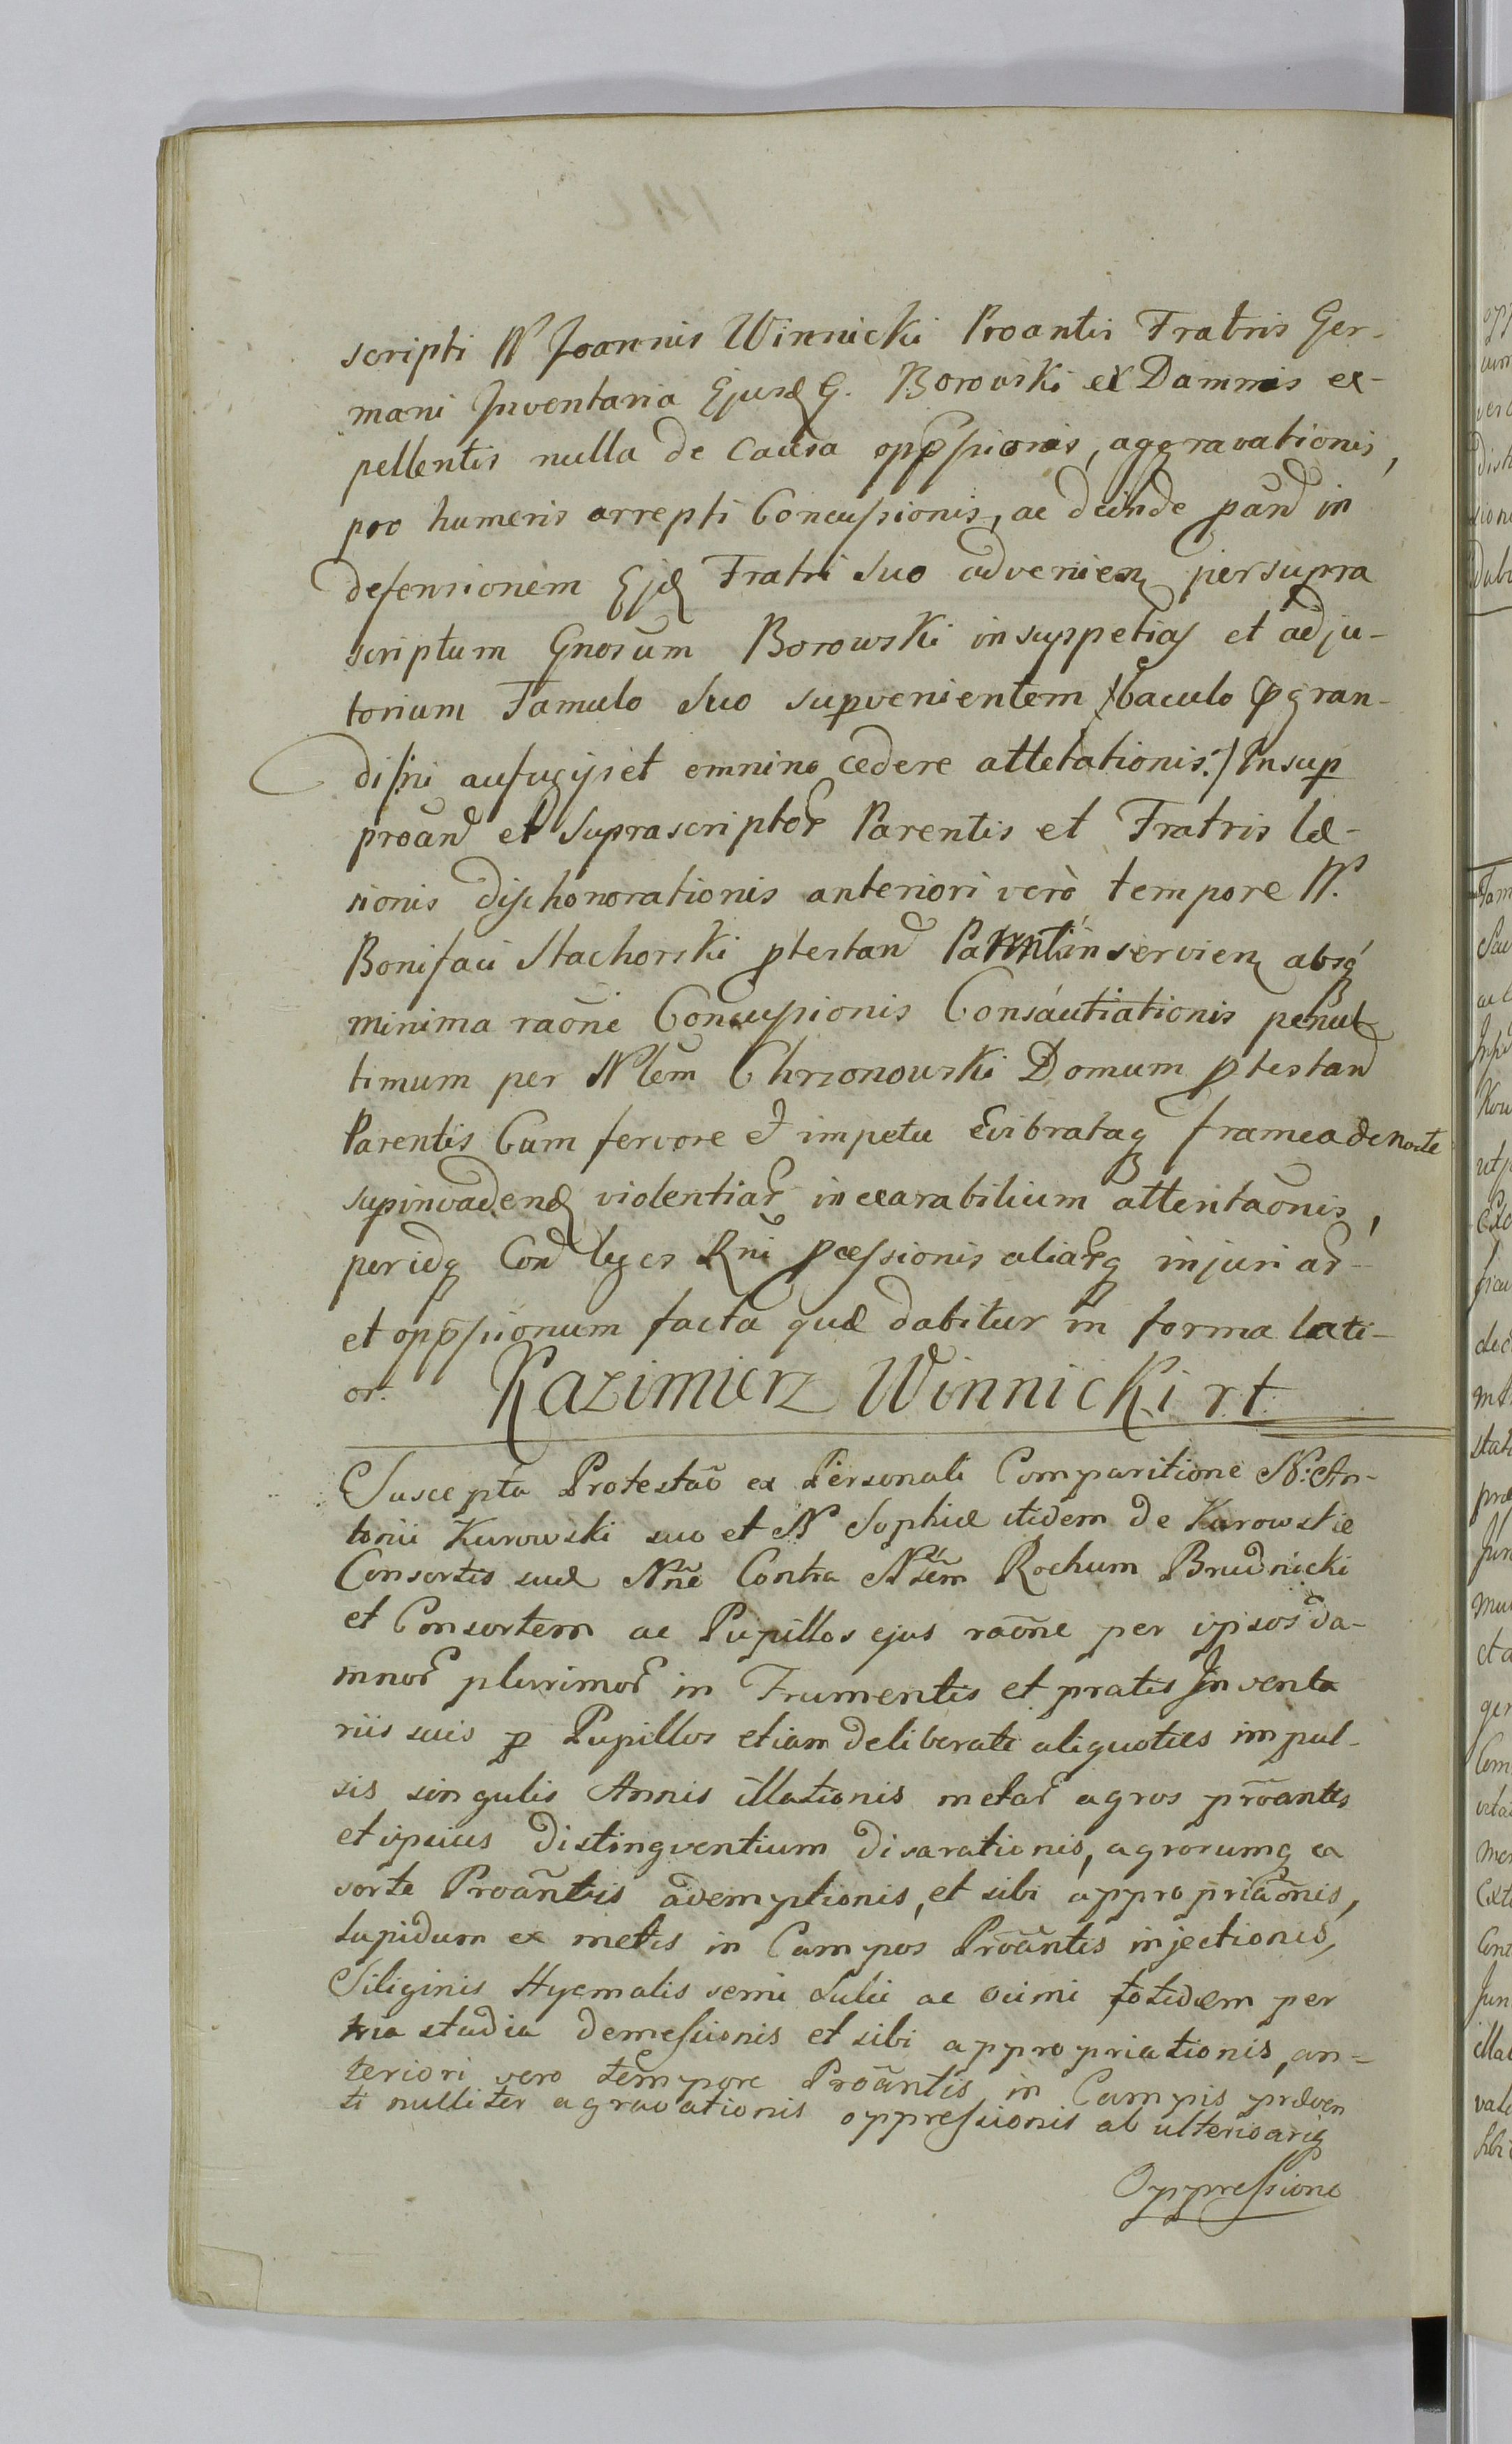 scripti N Joannis Winnicki Proantis Fratris Ger-
mani Inventaria Ejusd G. Borowski ex Damnis ex-
pellentis nulla de causa oppssionis, aggravationis,
pro humeris arrepti Concussionis, ac deinde pand in
defensionem Ejd Fratri suo advenien persupra
scriptum Gnosum Borowski in suppetias et adju-
torium Famulo suo supvenientem baculo pgran-
dissi aufugijs et omnino cedere attetationis./ Insup
proand et suprascriptor Parentis et Fratris læ-
sionis dischonorationis anteriori verò tempore N.
Bonifaci Stachorski ptestand inservien absq
minima raone Concussionis Consáutiationis penul
timum per Nlem Chrzonowski Domum ptestand
Parentis Cum fervore et impetu Evibrataq framea de nocte
supinvadend violentiar inexarabilium attentaonis,
peridq Cond leges Rni pcessionis aliarq injuriar
et oppssionum facta quæ dabitur in forma lati-
or. Kazimierz Winnicki rt
Suscepta Protestao ex Personali Comparitione N: An-
tonii Kurowski suo et N Sophiæ itidem de Kurowskie
Consortis suæ Nne Contra Nlem Rochum Brudnicki
et Consortem ac Pupillos ejus raone per ipsos da-
mnor plurimor in Frumentis et pratis Inventa
riis suis p Pupillos etiam deliberate aliquoties impul-
sis singulis Annis illationis metar agros proantis
et ipsius distingventium disarationis, agrorumq ex
sorte Proantis ademptionis, et sibi appropriaonis,
Lapidum ex metis in Campos Proantis injectionis,
Siliginis Hyemalis semi Sulci ac Ocimi totidem per
tria stadia demessionis et sibi appropriationis, an-
teriori vero tempore Proantis in Campis præven
ti nulliter agravationis oppressionis ab ulterioariq
Oppressione